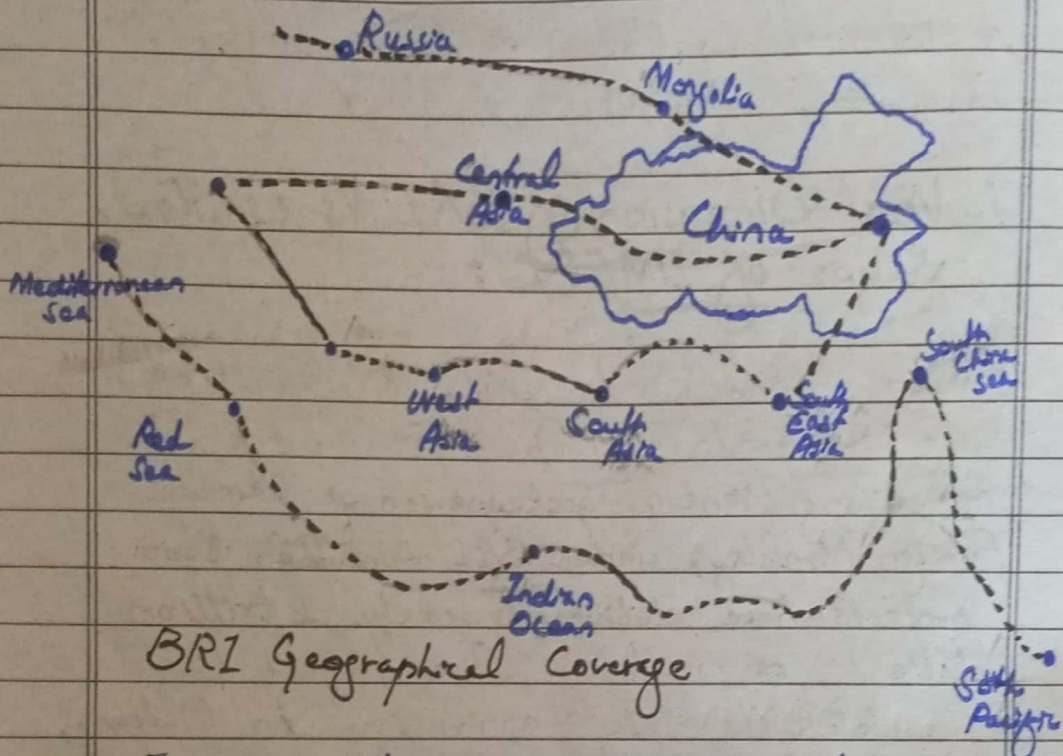 Russia
Mongolia
Central
Asia
China
Mediterranean
Sea
South
China
Sea
West
Asia
South
Asia
South
East
Asia
Red
Sea
Indian
Ocean
BRI Geographical Coverage
South
Pacific